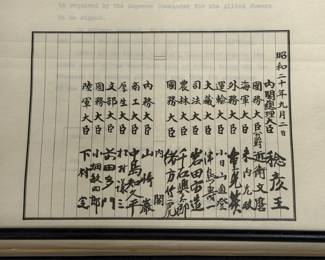 be required by the Supreme Commander for the Allied Powers
to be signed.
昭和二十年九月二日
内閣總理大臣 稔彦王
國務大臣公爵 近衛文麿
海軍大臣 米内光政
外務大臣 重光葵
運輸大臣 小日山直登
大藏大臣 津島壽一
司法大臣 岩田宙造
農林大臣 千石興太郎
國務大臣 緒方竹虎
内閣
内務大臣 山崎巖
商工大臣 中島知久平
厚生大臣 松村謙三
文部大臣 前田多門
國務大臣 小畑敏四郎
陸軍大臣 下村定